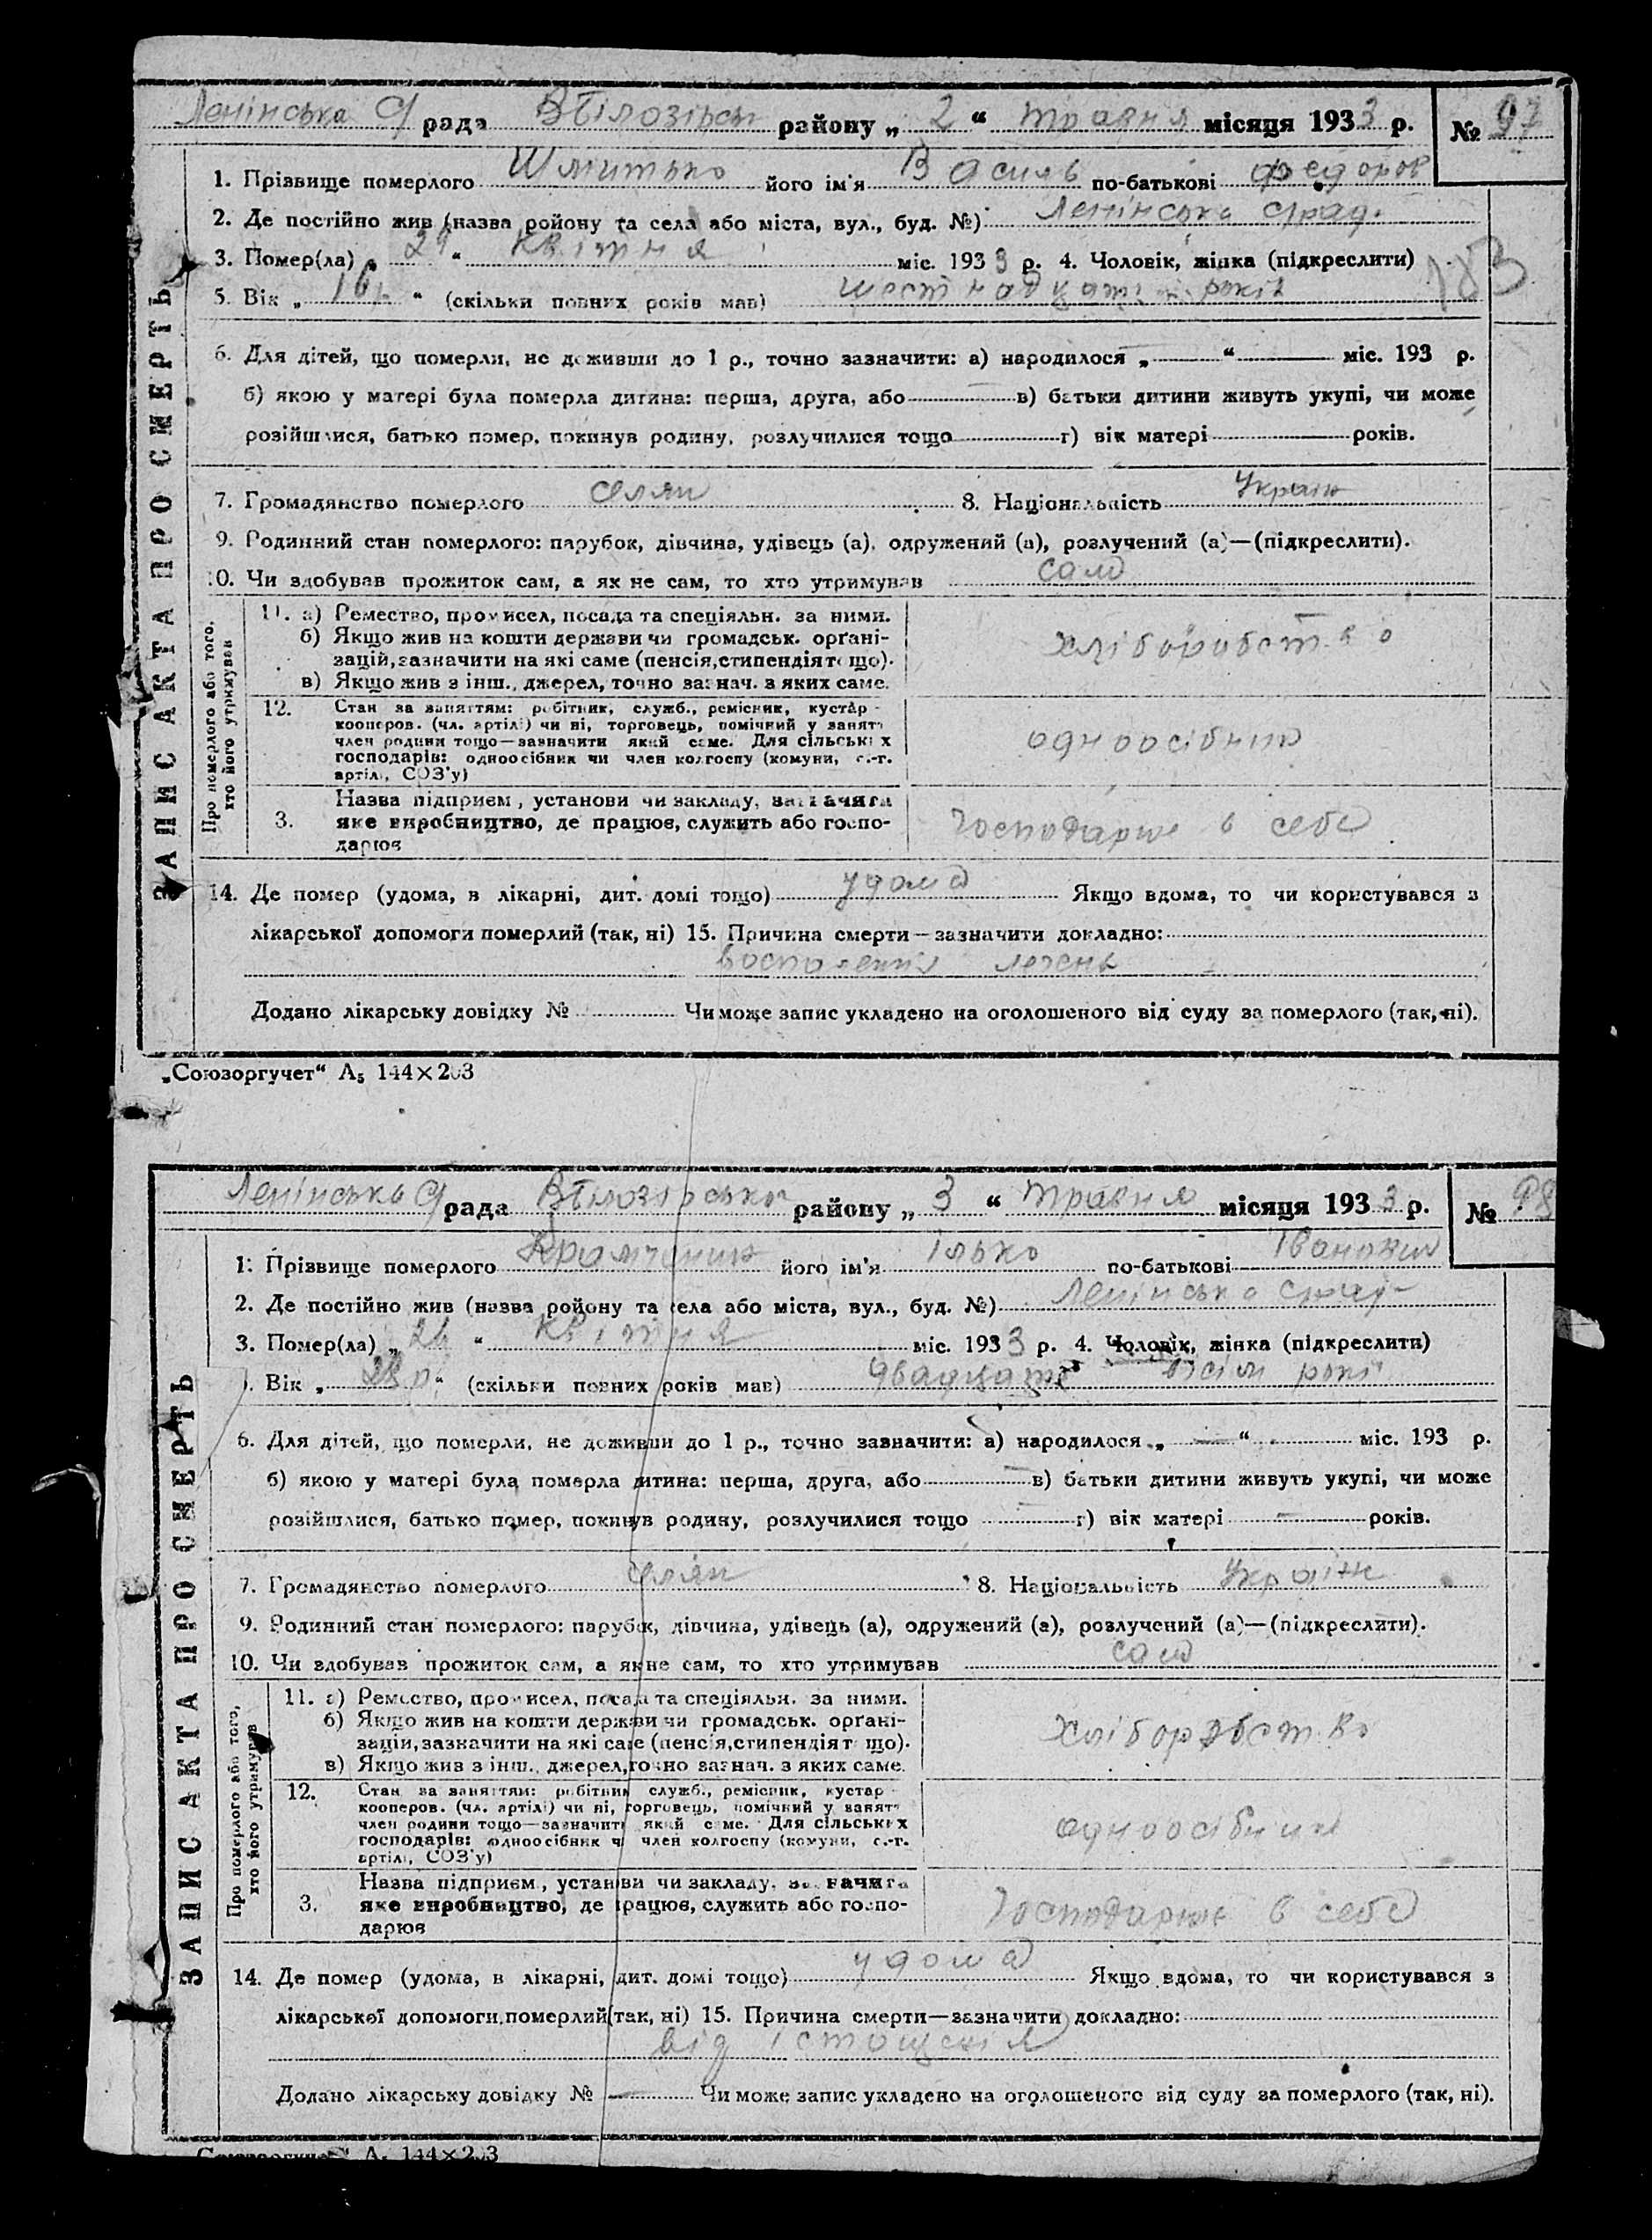 Ленінська с/ рада В Білозірськ району „ 2 “ травня місяця 193 3 р. № 97
1. Прізвище померлого його ім'я Василь по-батькові Федоров
2. Де постійно жив (назва ройону та села або міста, вул., буд. №) Ленінська с/рад.
3. Помер(ла) „ 29 “ квітня міс. 193 3 р. 4. Чоловік, жінка (підкреслити)
183
5. Вік „ 16 р. “ (скільки повних років мав) шостнадцять років
6. Для дітей, що померли, не доживши до 1 р., точно зазначити: а) народилося „ “ міс. 193 р.
б) якою у матері була померла дитина: перша, друга, або в) батьки дитини живуть укупі, чи може
розійшлися, батько помер, покинув родину, розлучилися тощо г) вік матері років.
7. Громадянство померлого селян 8. Національність Україн
9. Родинний стан померлого: парубок, дівчина, удівець (а), одружений (а), розлучений (а)—(підкреслити).
10. Чи здобував прожиток сам, а як не сам, то хто утримував сам
ЗАПИС АКТА ПРО СМЕРТЬ
Про померлого або того, хто його утримував
11. а) Ремество, промисел, посада та спеціяльн. за ними.
б) Якщо жив на кошти держави чи громадськ. орґані-
зацій, зазначити на які саме (пенсія, стипендія тощо).
в) Якщо жив з інш., джерел, точно зазнач. з яких саме.
хліборобство
12. Стан за заняттям: робітник, служб., ремісник, кустар -
кооперов. (чл. артілі) чи ні, торговець, помічний у занятт
член родини тощо—зазначити який саме. Для сільських
господарів: одноосібник чи член колгоспу (комуни, с.-г.
артілі, СОЗ'у)
одноосібник
3. Назва підприєм., установи чи закладу, зазначити
яке виробництво, де працює, служить або госпо-
дарює
господарює в себе
14. Де помер (удома, в лікарні, дит. домі тощо) удома Якщо вдома, то чи користувався з
лікарської допомоги померлий (так, ні) 15. Причина смерти—зазначити докладно:
воспаленія легень
Додано лікарську довідку № Чи може запис укладено на оголошеного від суду за померлого (так, ні).
„Союзоргучет“ А5 144×203
Ленінська с/ рада В Білозірської району „ 3 “ травня місяця 193 3 р. № 98
1. Прізвище померлого його ім'я Ілько по-батькові Іванович
2. Де постійно жив (назва ройону та села або міста, вул., буд. №) Ленінська с/рад
3. Помер(ла) „ “ квітня міс. 193 3 р. 4. Чоловік, жінка (підкреслити)
. Вік „ 28 р. “ (скільки повних років мав) двадцять вісім років
6. Для дітей, що померли, не доживши до 1 р., точно зазначити: а) народилося „ — “ міс. 193 р.
б) якою у матері була померла дитина: перша, друга, або в) батьки дитини живуть укупі, чи може
розійшлися, батько помер, покинув родину, розлучилися тощо г) вік матері — років.
7. Громадянство померлого селян 8. Національність Україн
9. Родинний стан померлого: парубок, дівчина, удівець (а), одружений (а), розлучений (а)—(підкреслити).
10. Чи здобував прожиток сам, а як не сам, то хто утримував сам
ЗАПИС АКТА ПРО СМЕРТЬ
Про померлого або того, хто його утримував
11. а) Ремество, промисел, посада та спеціяльн. за ними.
б) Якщо жив на кошти держави чи громадськ. орґані-
зацій, зазначити на які саме (пенсія, стипендія тощо).
в) Якщо жив з інш., джерел, точно зазнач. з яких саме.
хліборобство
12. Стан за заняттям: робітник служб., ремісник, кустар -
кооперов. (чл. артілі) чи ні, торговець, помічний у занятт
член родини тощо—зазначити який саме. Для сільських
господарів: одноосібник чи член колгоспу (комуни, с.-г.
артілі, СОЗ'у)
одноосібник
3. Назва підприєм., установи чи закладу, зазначити
яке виробництво, де працює, служить або госпо-
дарює
господарює в себе
14. Де помер (удома, в лікарні, дит. домі тощо) удома Якщо вдома, то чи користувався з
лікарської допомоги, померлий (так, ні) 15. Причина смерти—зазначити докладно:
від істощенія
Додано лікарську довідку № — Чи може запис укладено на оголошеного від суду за померлого (так, ні).
„Союзоргучет“ А5 144×203